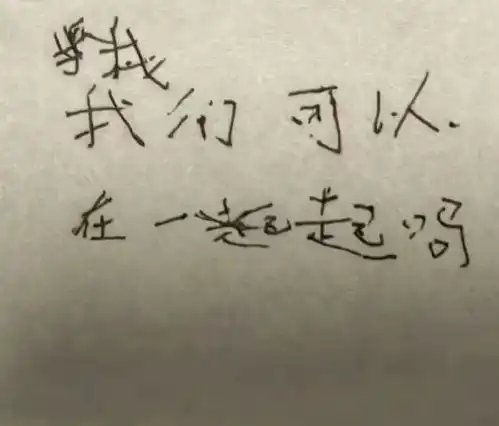 我
我们可以.
在一起吗